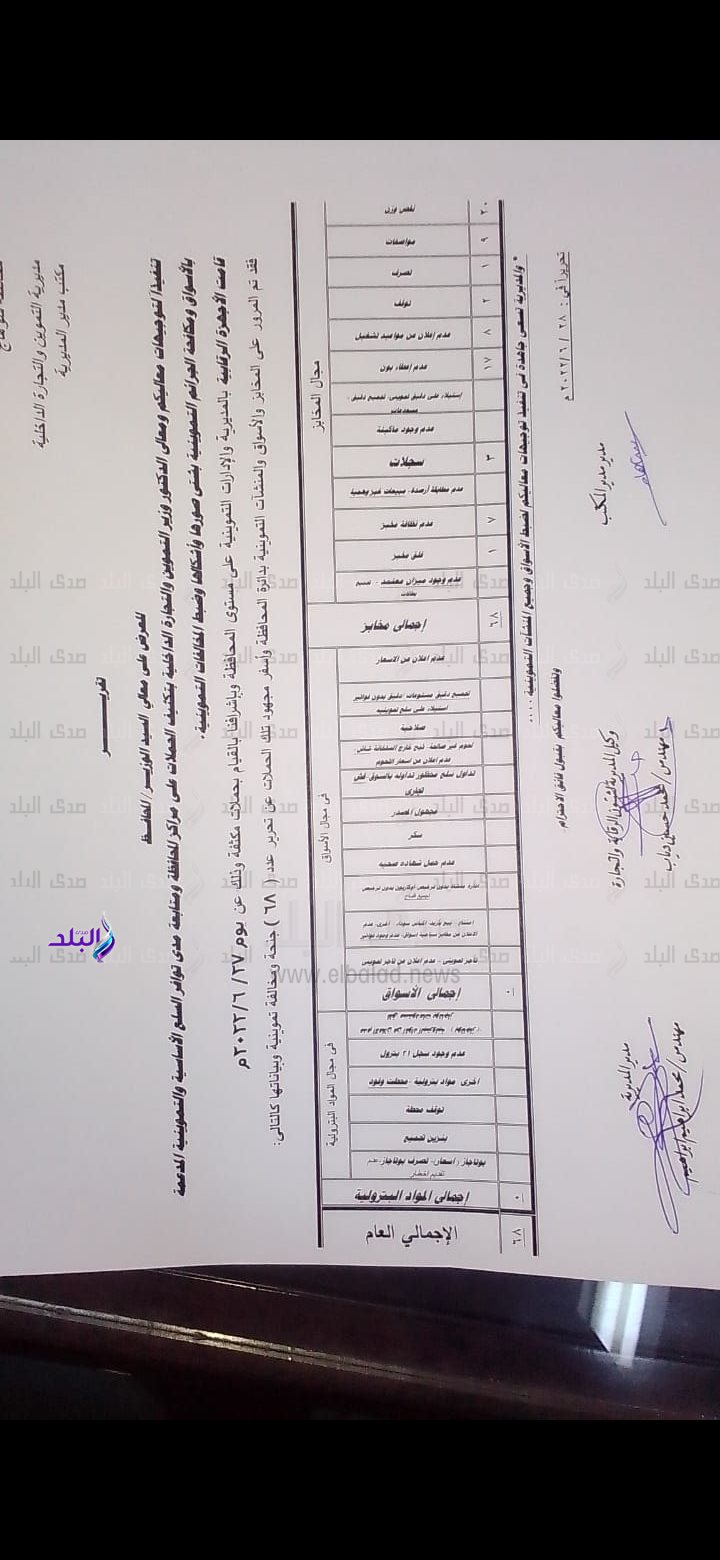 مديرية التموين والتجارة الداخلية
مكتب مدير المديرية
تقريـــــر
للعرض على معالي السيد الوزيـر / المحافـظ
تنفيذا لتوجيهات معاليكم ومعالى الدكتور وزير التموين والتجارة الداخلية بتكثيف الحملات على مراكز المحافظة ومتابعة مدى توافر السلع الأساسية والتموينية المدعمة
بالأسواق ومكافحة الجرائم التموينية بشتى صورها وأشكالها وضبط المخالفات التموينية.
قامت الأجهزة الرقابية بالمديرية والإدارات التموينية على مستوى المحافظة وباشرافنا بالقيام بحملات مكثفة وذلك عن يوم ٢٧ / ٦ / ٢٠٢٢ م
فقد تم المرور على المخابز والأسواق والمنشآت التموينية بدائرة المحافظة وأسفر مجهود تلك الحملات عن تحرير عدد ( ٦٨ ) جنحة ومخالفة تموينية وبياناتها كالتالى :
مجال المخابز
نقص وزن ٢٠
مواصفات ٩
تصرف ١
توقف ٢
عدم إعلان عن مواعيد تشغيل ٨
عدم إعطاء بون ١٧
عدم وجود ماكينة
سجلات ٣
عدم مطابقة أرصدة - مبيعات غير وهمية
عدم نظافة مخبز ٧
غلق مخبز ١
عدم وجود ميزان معتمد -
إجمالى مخابز ٦٨
فى مجال الأسواق
عدم اعلان عن الاسعار
تجميع دقيق مستودعات / دقيق بدون فواتير
استيلاء على سلع تموينيه
صلاحية
لحوم غير صالحة - ذبح خارج السلخانة
عدم إعلان عن اسعار اللحوم
تداول سلع محظور تداوله بالسوق - غش تجارى
مجهول المصدر
سكر
عدم حمل شهاده صحيه
تاجر تموينى - عدم اعلان عن تاجر تموينى
إجمالى الأسواق ٠
فى مجال المواد البترولية
عدم وجود سجل ٢١ بترول
اخرى مواد بترولية - محطات وقود
توقف محطة
بنزين تجميع
بوتاجاز / اسعار - تصرف بوتاجاز - عدم
إجمالى المواد البترولية ٠
الإجمالي العام ٦٨
* والمديرية تسعى جاهدة فى تنفيذ توجيهات معاليكم لضبط الأسواق وجميع المنشآت التموينية ....
وتفضلوا معاليكم بقبول فائق الاحترام
تحريرا في : ٢٨ / ٦ / ٢٠٢٢ م
مدير مدير المكتب
وكيل المديرية لشئون الرقابة والتجارة
مهندس / محمد حسنى دياب
مدير المديرية
مهندس / محمد ابراهيم ابراهيم
صدى البلد
www.elbalad.news